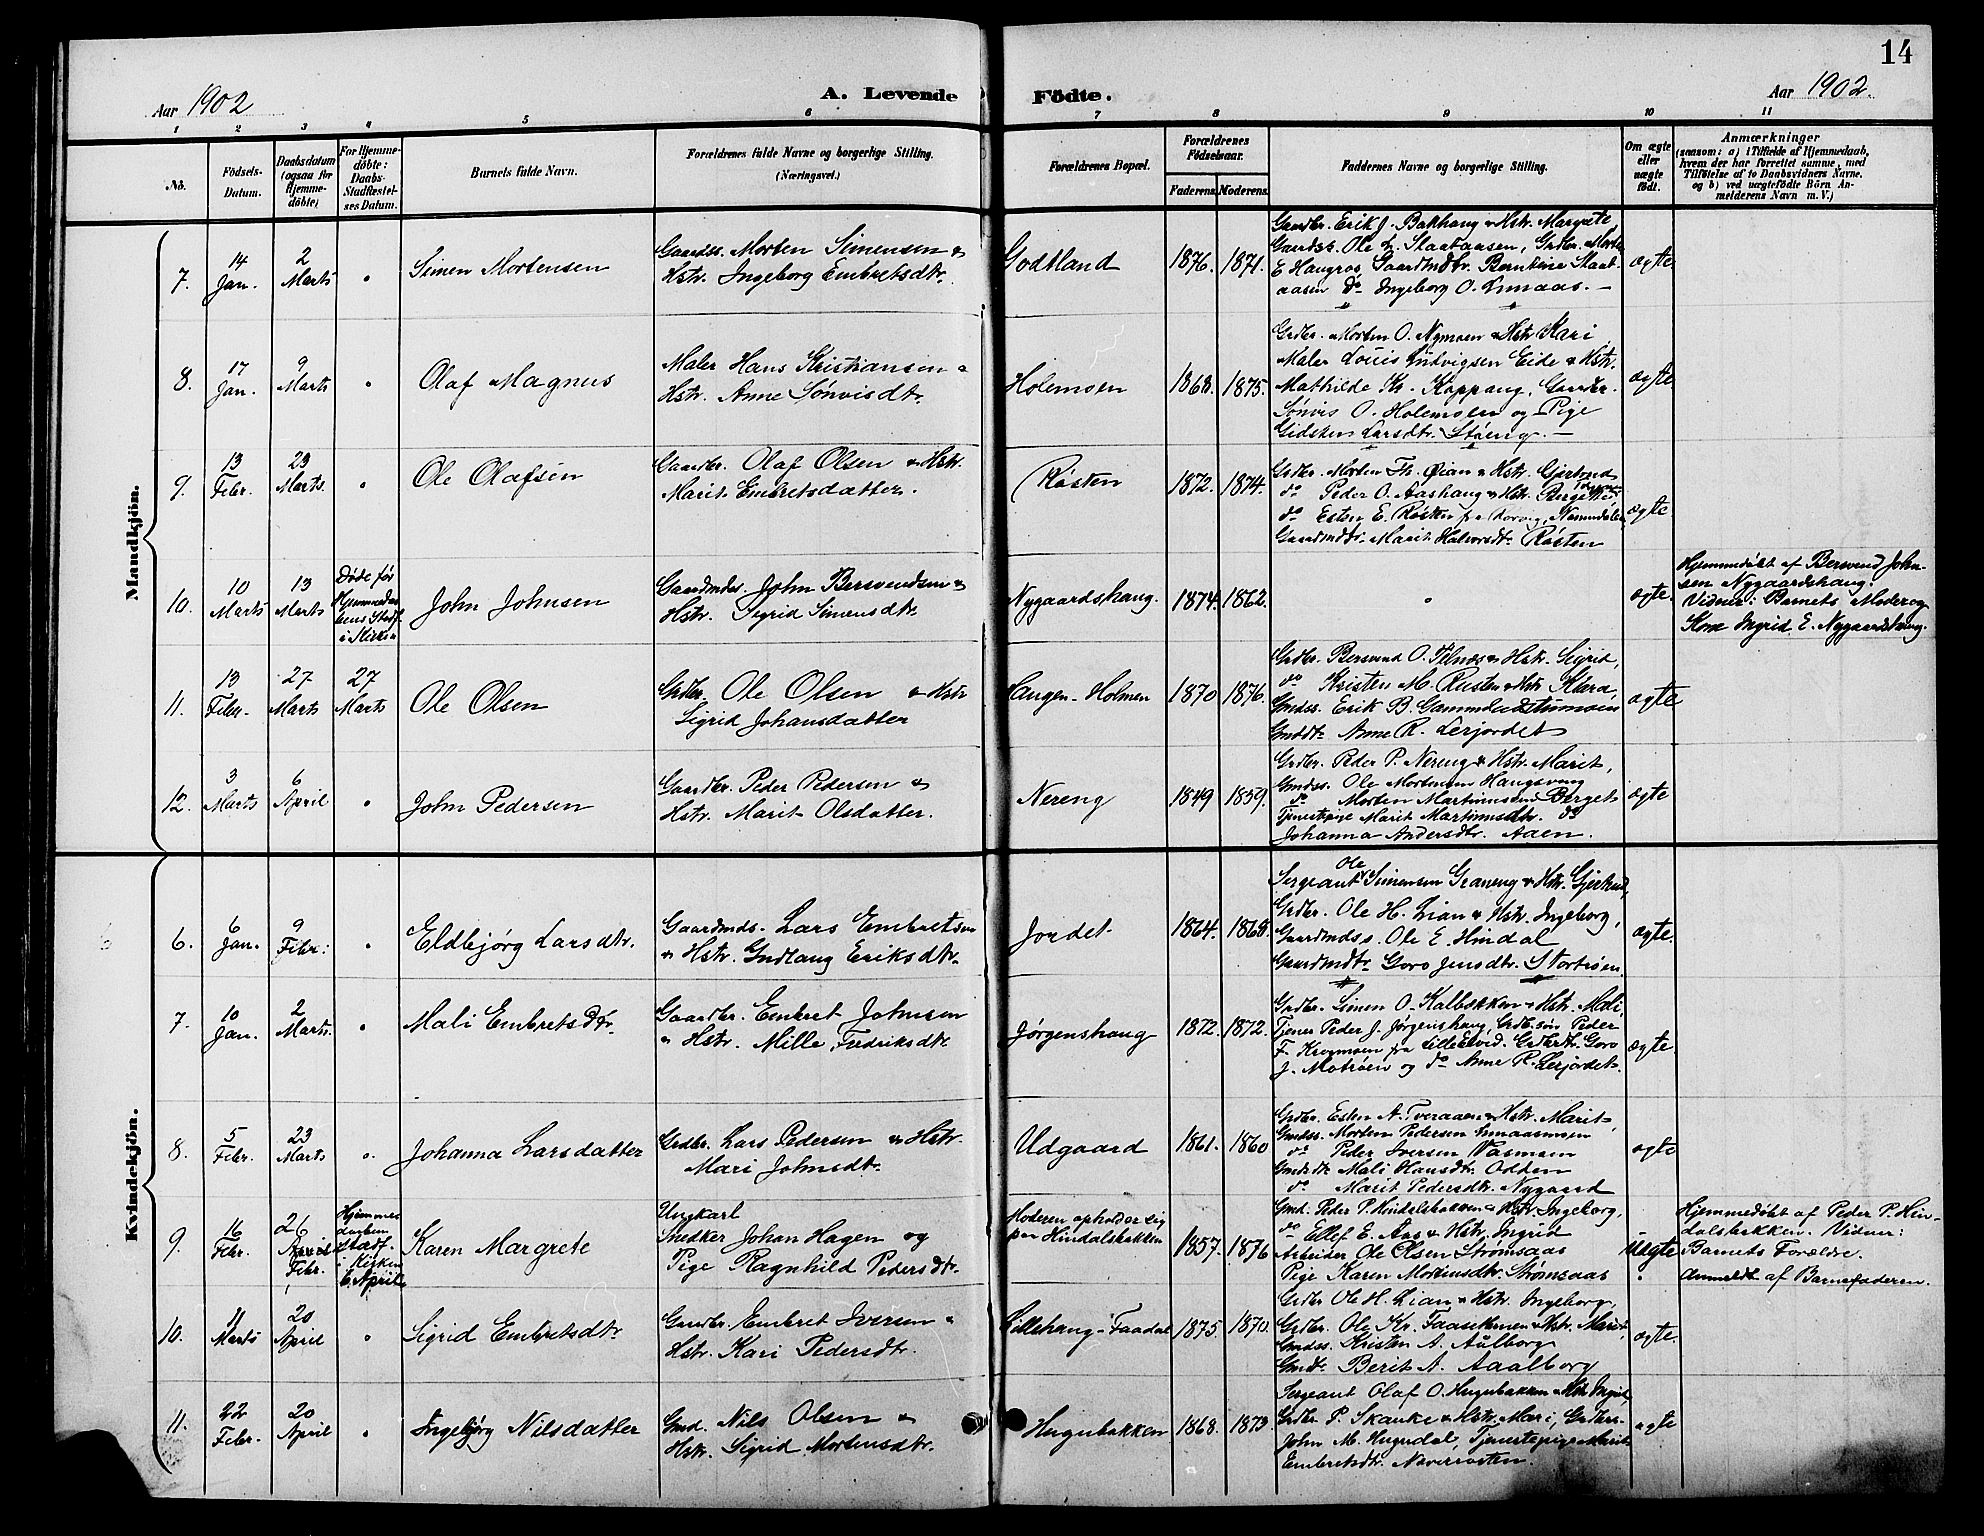 14
Aar 1902
A. Levende Födte.
Aar 1902.
1 2 3 4 5 6 7 8 9 10 11
No.
Födsels-
Datum.
Daabsdatum
(ogsaa for
Hjemme-
döbte)
For Hjemme-
döbte:
Daabs-
Stadfæstel-
ses Datum.
Barnets fulde Navn.
Forældrenes fulde Navne og borgerlige Stilling.
(Næringsvei.)
Forældrenes Bopæl.
Forældrenes
Födselsaar.
Faderens.
Moderens.
Faddernes Navne og borgerlige Stilling.
Om ægte
eller
uægte
födt.
Anmærkninger
(saasom: a) i Tilfælde af Hjemmedaab,
hvem der har forrettet samme, med
Tilföielse af to Daabsvidners Navne.
og b) ved uægtefödte Börn An-
melderens Navn m. V.)
Mandkjön.
7.
14
Jan.
2
Marts
"
Simen Mortensen
Gaardss. Morten Simensen &
Hstr. Ingeborg Embretsdtr.
Godtland
1876.
1871.
Gaardbr. Erik J. Bakhaug & Hstr. Margrete
Gaardsk. Ole L. Staataasen, Grdbr. Morten
E Haugros, Gaardmdtr. Berntine Staat-
aasen do Ingeborg O. Lunaas. —
ægte
8.
17
Jan.
9
Marts
"
Olaf Magnus
Maler Hans Kristiansen &
Hstr. Anne Sønvisdtr.
Holemoen
1868.
1875.
Grdbr. Morten O. Nymoen & Hstr Kari
Maler Louis Ludvigsen Eide & Hstr.
Mathilde Kr. Koppang, Gaardbr.
Sønvis O. Holemoen og Pige
Gidsken Larsdtr. Støeng. —
ægte
9.
13
Febr.
23
Marts.
"
Ole Olafsen
Gaardbr. Olaf Olsen & Hstr.
Marit Embretsdatter.
Røsten
1872.
1874.
Grdbr. Morten Th. Øian & Hstr. Gjertrud
do Peder O. Aashaug & Hstr. Bergitte
do Esten E. Røsten fra Namdalen
Gaardmdtr. Marit Halvorsdtr. Røsten
ægte
10.
10
Marts
13
Marts
Døde før
Hjemmedaa-
bens Stadf.
i Kirken
John Johnsen
Gaardmds. John Bersvendsen &
Hstr. Sigrid Simensdtr.
Nygaardshaug.
1874.
1862.
"
ægte.
Hjemmedøbt af Bersvend John-
sen Nygaardshaug.
Vidner: Barnets Moder og
Kone Ingrid E. Nygaardshaug.
11.
13
Febr.
27
Marts
27
Marts
Ole Olsen
Grdbr. Ole Olsen & Hstr
Sigrid Johansdatter
Haugen-Holmen
1870
1876.
Grdbr. Bersvend O. Telnæs & Hstr. Sigrid,
do Kristen M. Rusten & Hstr. Klara,
Gmdss. Erik B. Gammelstumoen
Gmddtr Anne R. Lerjordet
ægte
12.
3
Marts
6
April
"
John Pedersen
Gaardbr. Peder Pedersen &
Hstr. Marit Olsdatter.
Nereng
1849
1859.
Grdbr. Peder P. Nereng & Hstr. Marit,
Gmdss. Ole Mortensen Haugsvang
do Morten Martinussen Berget
Tjenestpige Marit Martinusdtr. do
Johanna Andersdtr. Aaen.
ægte
Kvindekjön.
6.
6
Jan.
9
Febr.
"
Eldbjørg Larsdtr.
Gaardmds. Lars Embretsen
& Hstr. Gudlaug Eriksdtr.
Jordet
1864.
1868.
Ole
Sergeant Simensen Graneng & Hstr. Gjertrud,
Grdbr. Ole H. Lian & Hstr. Ingeborg,
Gaardmdss. Ole E. Hindal
Gaardmdtr Goro Jensdtr. Stortrøen.
ægte.
7.
10
Jan.
2
Marts.
"
Mali Embretsdtr
Gaardbr. Embret Johnsen
& Hstr. Mille Fredriksdtr.
Jørgenshaug
1872.
1872.
Grdbr. Simen O. Kalbækken & Hstr. Mali,
Tjener Peder J. Jørgenshaug, Grdb.søn Peder
F. Krogmoen fra Lilleelvd. Grdbrdtr. Goro
J. Motrøen og do Anne R. Lerjordet.
ægte.
8.
5
Febr.
23
Marts
"
Johanna Larsdatter
Grdbr. Lars Pedersen & Hstr.
Mari Johnsdtr.
Udgaard
1861.
1860
Grdbr. Esten A. Tveraaen & Hstr. Marit,
Gmdss. Morten Pedersen Lunaasmoen
do Peder Iversen Vasmoen
Gmdsdtr Mali Hansdtr. Odden
do Marit Pedersdtr. Nygaard
ægte
9.
16
Febr.
26
Febr.
Hjemme
daaben
Stadf.
i Kirken
6 April
Karen Margrete
Ungkarl
Snedker Johan Hagen og
Pige Ragnhild Pedersdtr.
Moderen opholder sig
paa Hindalsbakken
1857.
1876
Gmd. Peder P. Hindalsbakken & Hstr. Ingeborg,
do Ellef E. Aas & Hstr. Ingrid
Arbeider Ole Olsen Strømsaas
Pige Karen Mortensdtr. Strømsaas
Uægte
Hjemmedøbt af Peder P. Hin-
dalsbakken. Vidner:
Barnets Forældre.
Anmeldt af Barnefaderen.
10.
11
Marts
20
April
"
Sigrid Embretsdtr
Gaardbr. Embret Iversen &
Hstr. Kari Pedersdtr.
Lillehaug-Faadal
1875.
1870.
Grdbr Ole H. Lian & Hstr. Ingeborg,
Grdbr. Ole Kr. Faasekmen & Hstr. Marit,
Gmdss. Kristen A. Aalborg
Gmdt. Berit A. Aaalborg
ægte.
11.
22
Febr.
20
April
"
Ingebjørg Nilsdatter
Gmd. Nils Olsen &
Hstr. Sigrid Mortensdtr.
Hugubakken
1868.
1873.
Sergeant Olaf O. Hugubakken & Hstr Ingrid,
Grdbr. P. Skanke & Hstr. Mari, Grdbrs.
John M. Hugudal, Tjenestepige Marit
Embretsdtr. Naverrosten.
ægte